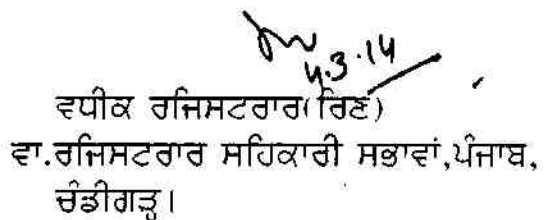 4.3.14
ਵਧੀਕ ਰਜਿਸਟਰਾਰ(ਰਿਣ)
ਵਾ.ਰਜਿਸਟਰਾਰ ਸਹਿਕਾਰੀ ਸਭਾਵਾਂ,ਪੰਜਾਬ,
ਚੰਡੀਗੜ੍ਹ।